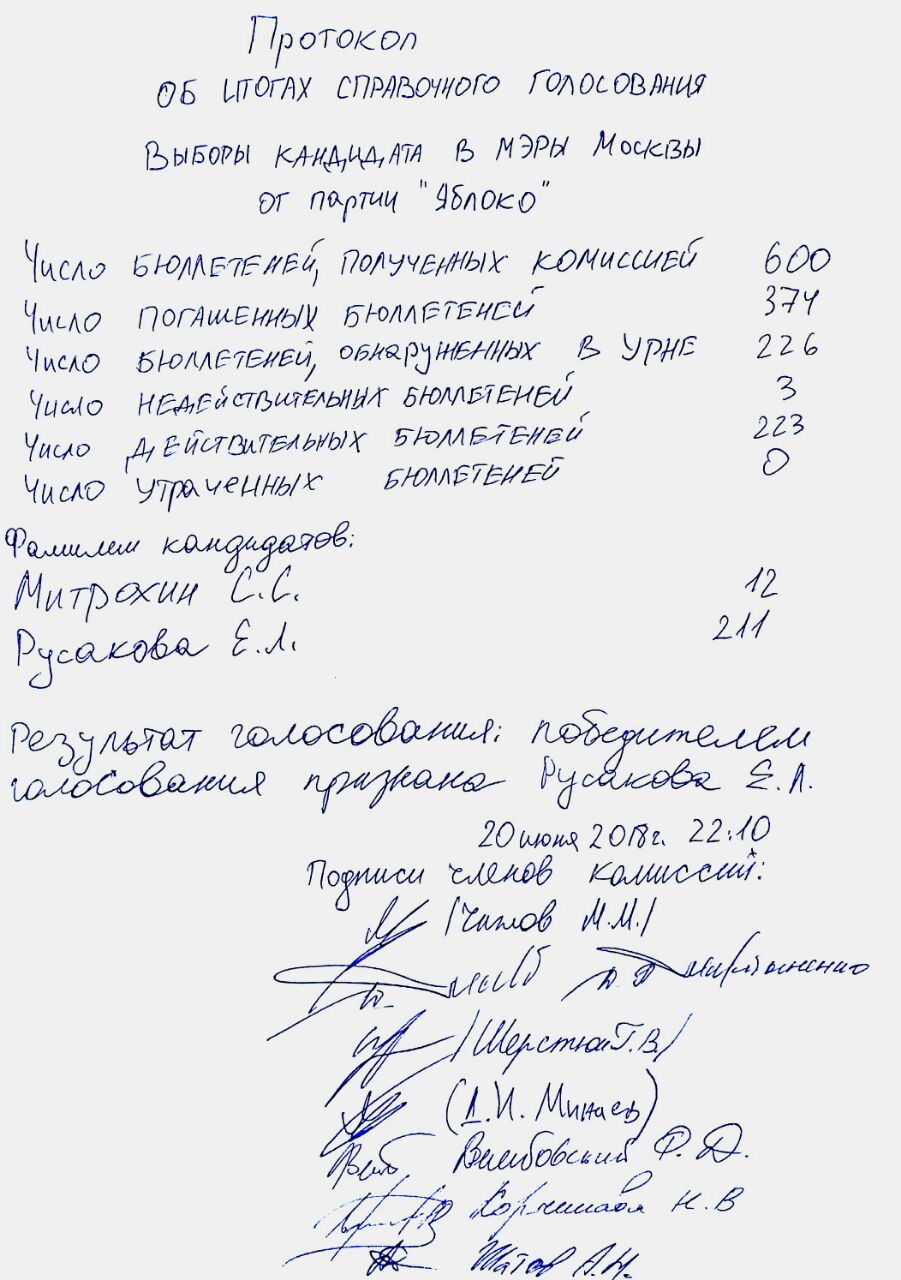 Протокол
ОБ ИТОГАХ СПРАВОЧНОГО ГОЛОСОВАНИЯ
ВЫБОРЫ КАНДИДАТА В МЭРЫ МОСКВЫ
ОТ ПАРТИИ "ЯБЛОКО"
Число БЮЛЛЕТЕНЕЙ, ПОЛУЧЕННЫХ КОМИССИЕЙ 600
Число ПОГАШЕННЫХ БЮЛЛЕТЕНЕЙ 374
Число БЮЛЛЕТЕНЕЙ, ОБНАРУЖЕННЫХ В УРНЕ 226
Число НЕДЕЙСТВИТЕЛЬНЫХ БЮЛЛЕТЕНЕЙ 3
Число ДЕЙСТВИТЕЛЬНЫХ БЮЛЛЕТЕНЕЙ 223
Число УТРАЧЕННЫХ БЮЛЛЕТЕНЕЙ 0
Фамилии кандидатов:
Митрохин С.С. 12
Русакова Е.Л. 211
Результат голосования: победителем
голосования признана Русакова Е.Л.
20 июня 2018г. 22:10
Подписи членов комиссий:
М.М./
/Шерстюк Г.В./
(Д.И. Минаев)
Ф.Д.
Н.В
Шатов А.Н.